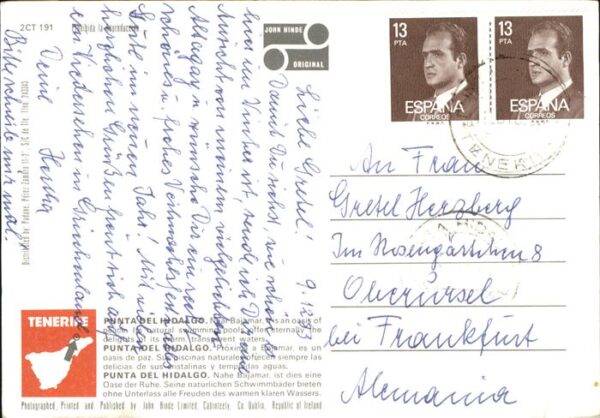 2CT 191
JOHN HINDE
ORIGINAL
13
PTA
ESPAÑA
CORREOS
13
PTA
ESPAÑA
CORREOS
9.12.83
Liebe Gretel!
Damit Du siehst, wie schön es
hier im Winter ist, sende ich Dir eine
Ansicht von meinem
und wünsche Dir ein recht
schönes u. frohes Weihnachtsfest u. alles
Gute im neuen Jahr! Mit vielen
herzlichen Grüßen freut sich auf
ein Wiedersehen in Griechenland
Deine Hertha
Bitte schreibe mir mal.
An Frau
Gretel Herzberg
Im Rosengärtchen 8
Oberursel
bei Frankfurt
Alemania
TENERIFE
PUNTA DEL HIDALGO. Near Bajamar, is an oasis of
its natural swimming pools offer eternally the
delights of its warm transparent waters.
PUNTA DEL HIDALGO. Próximo a Bajamar, es un
oasis de paz. Sus piscinas naturales ofrecen siempre las
delicias de sus cristalinas y templadas aguas.
PUNTA DEL HIDALGO. Nahe Bajamar, ist dies eine
Oase der Ruhe. Seine natürlichen Schwimmbäder bieten
ohne Unterlass alle Freuden des warmen klaren Wassers.
Photographed, Printed and Published by John Hinde Limited, Cabinteely, Co Dublin, Republic of Ireland